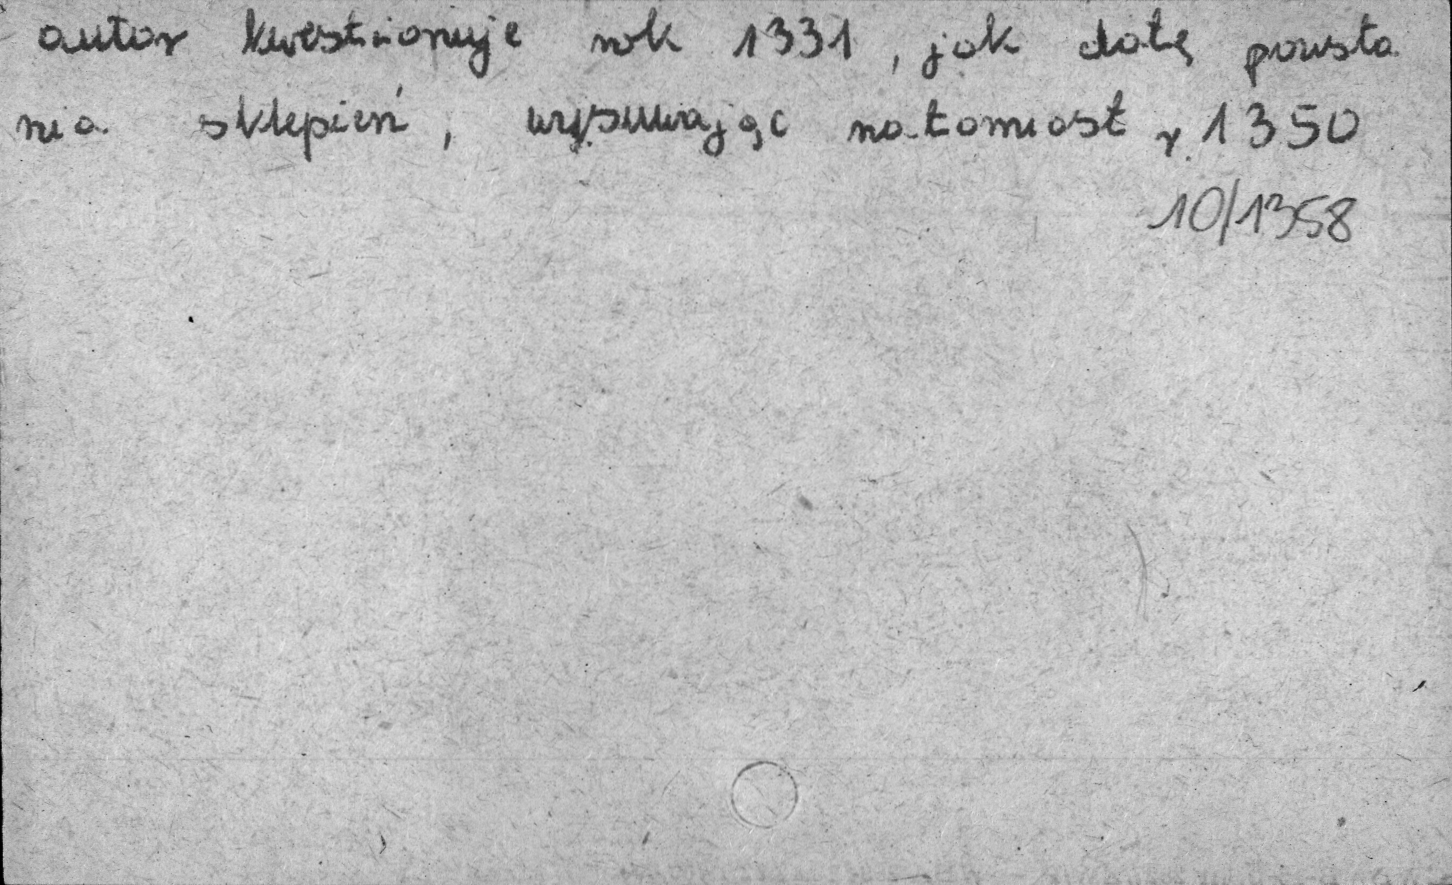 autor kwestionuje rok 1331, jak datę powsta
nia sklepień, wysuwając natomiast r. 1350
10/1358